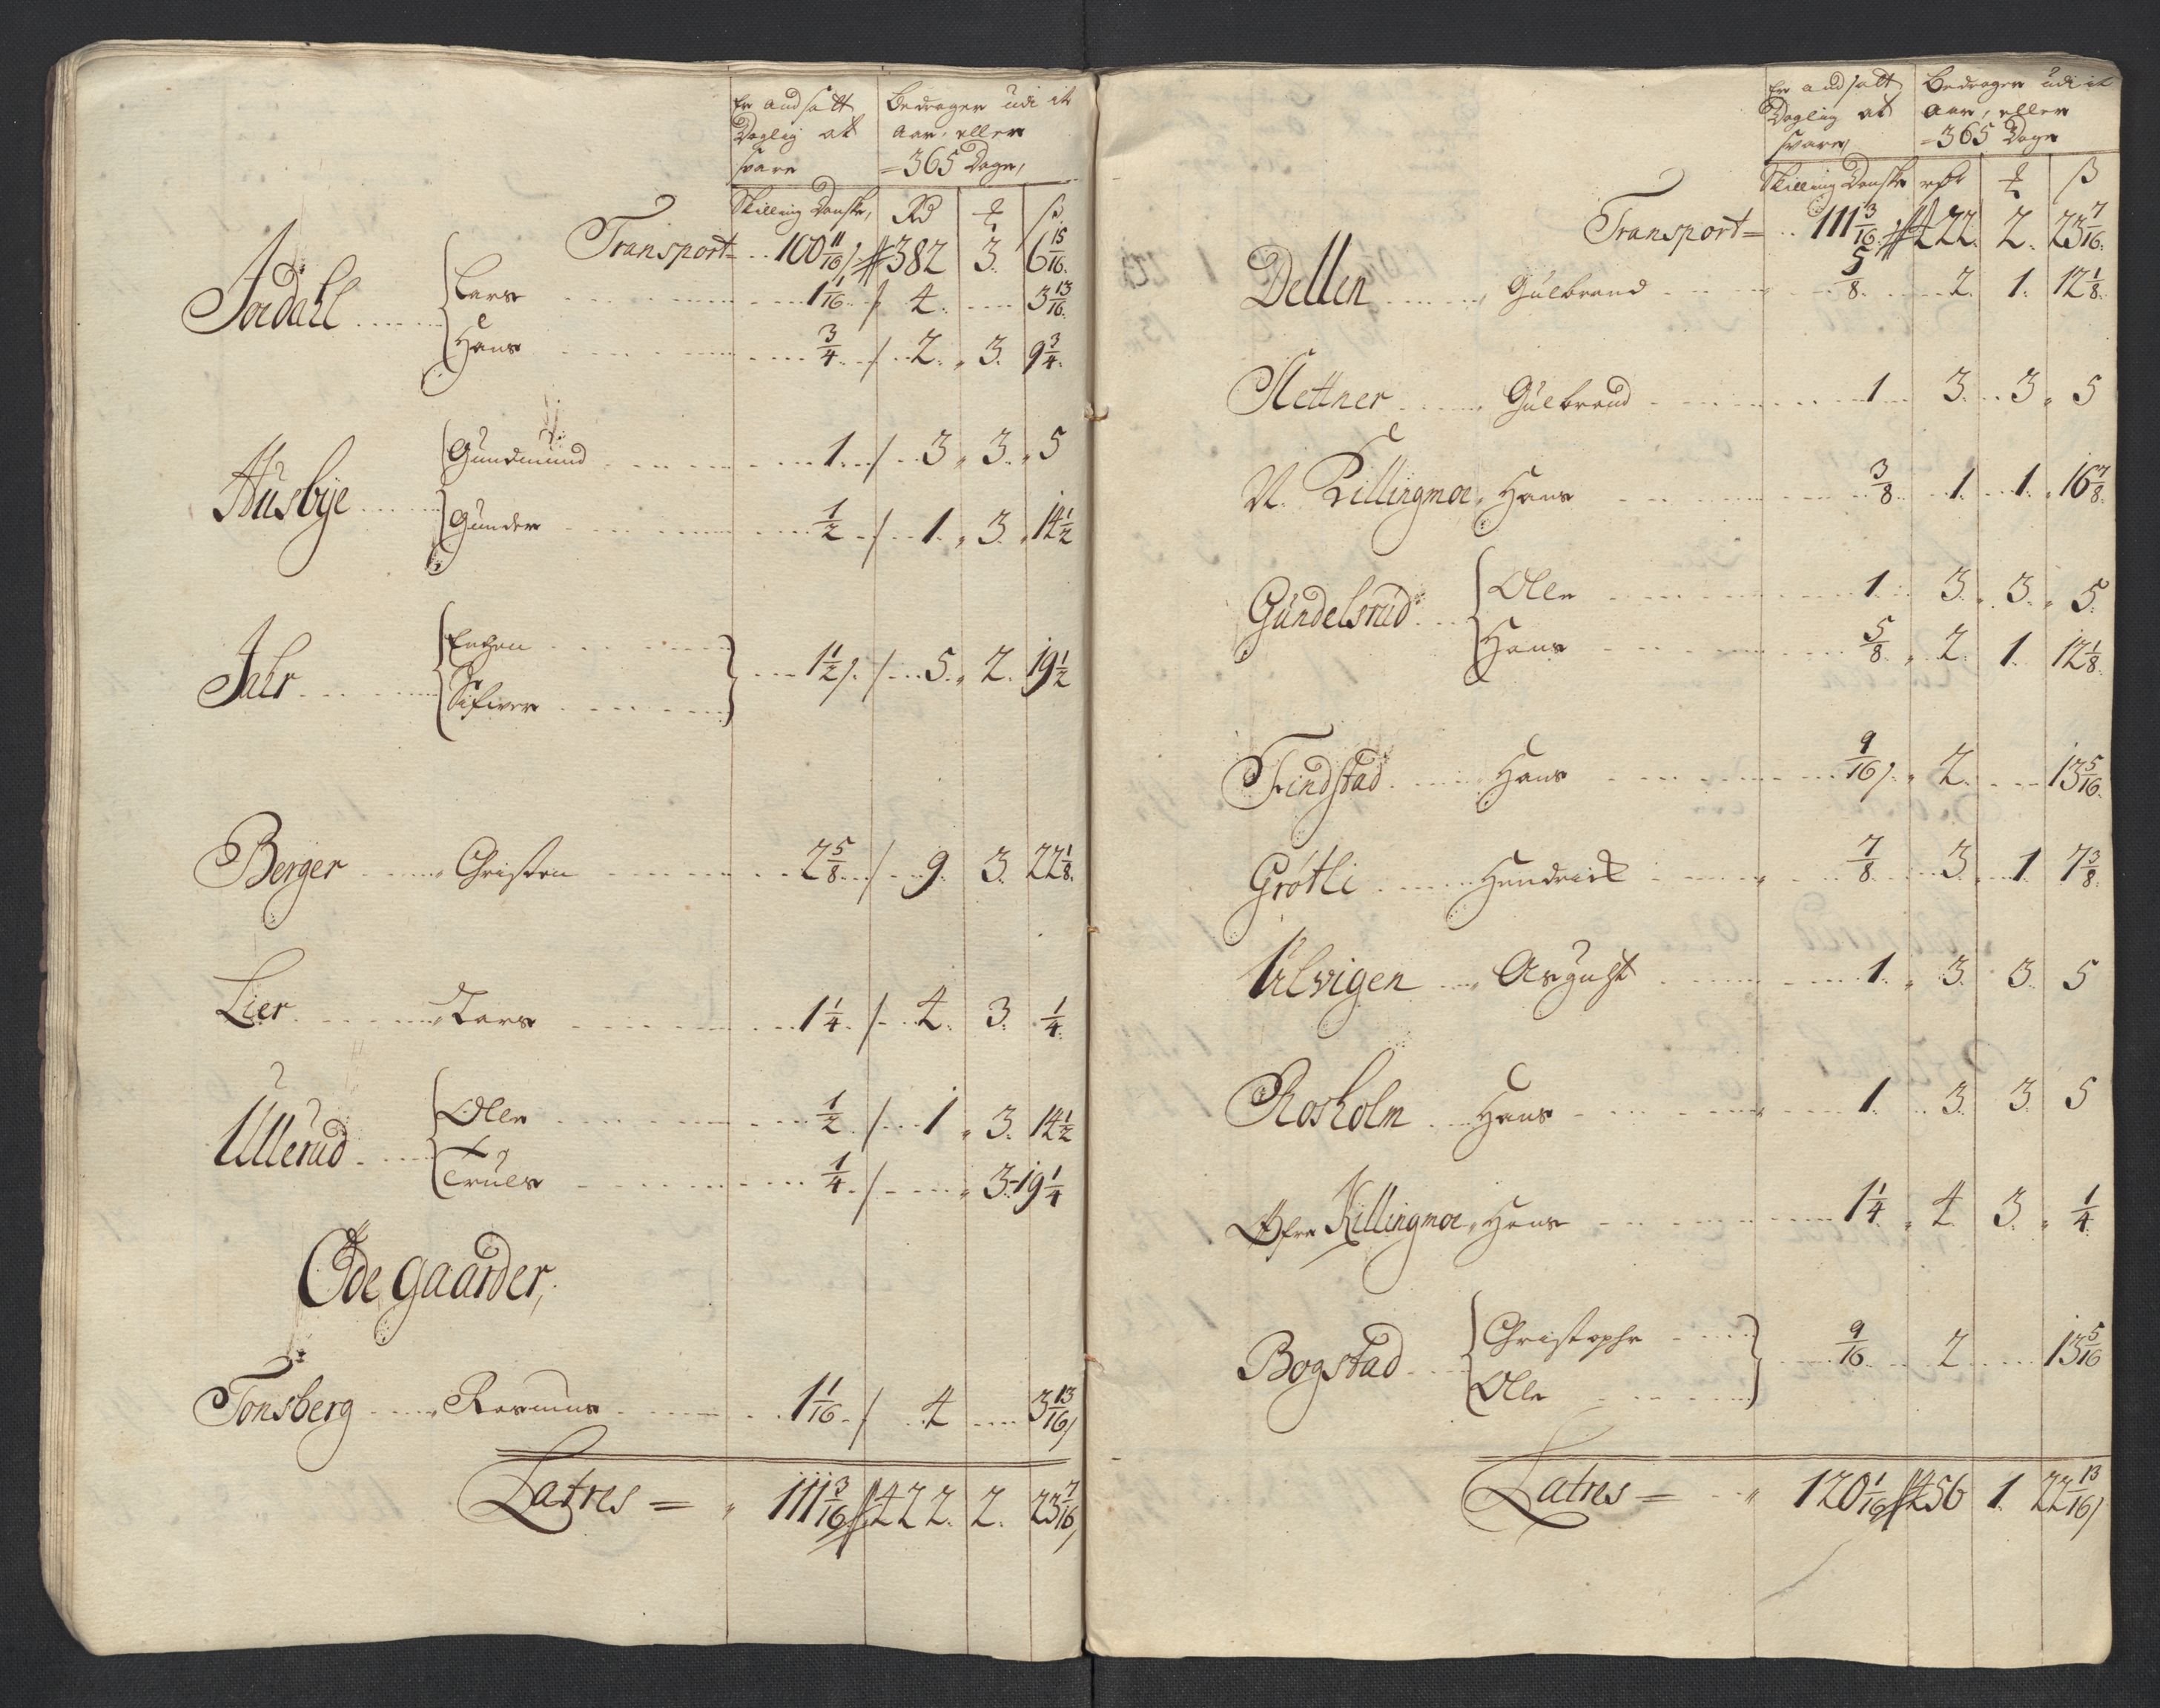 Er andsatt
Daglig at
svare
Bedrager udi it
Aar, eller
=365 Dage,
Skilling Danske, Rd ß
Transport= 100 11/16 382 3. 6 15/16.
Jordahl Lars 1 1/16 4. 3 13/16.
Hans 3/4 2. 3. 9 3/4.
Husbye Gundmund 1. 3. 3. 5
Gunder 1/2 1. 3. 14 1/2
Jahr
Sifver 1 1/2 5. 2. 19 1/2
Berger Christen 2 5/8 9. 3. 22 1/8.
Lier Lars 1 1/4 4. 3. 1/4.
Ullerud Ole 1/2 1 3. 14 1/2
Truls 1/4 3. 19 1/4
Øde gaarder,
Tonsberg Rasmus 1 1/16 4 3 13/16
Latres = 111 3/16 422. 2. 23 7/16
Er andsatt
Daglig at
svare,
Bedrager udi it
Aar, eller
=365 Dage
Skilling Danske rdr ß
Transport= 111 3/16 422. 2. 23 7/16.
Dellen Gulbrand 5/8 2. 1. 12 1/8.
Slettner Gulbrand 1 3. 3. 5
N. Killingmoe Hans 3/8 1. 1. 16 7/8.
Gundelsrud Ole 1 3. 3. 5.
Hans 5/8 2. 1. 12 1/8.
Findstad Hans 9/16 2. 13 5/16.
Grøtli Hendrick 7/8 3. 1 7 3/8.
Ulvigen August 1. 3. 3. 5
Rosholm Hans 1. 3. 3. 5
Øfre Killingmoe Hans 1 1/4 4. 3. 1/4.
Bogstad Christopher 9/16 2 13 5/16
Ole
Latres = 120 1/16 456 1. 22 13/16